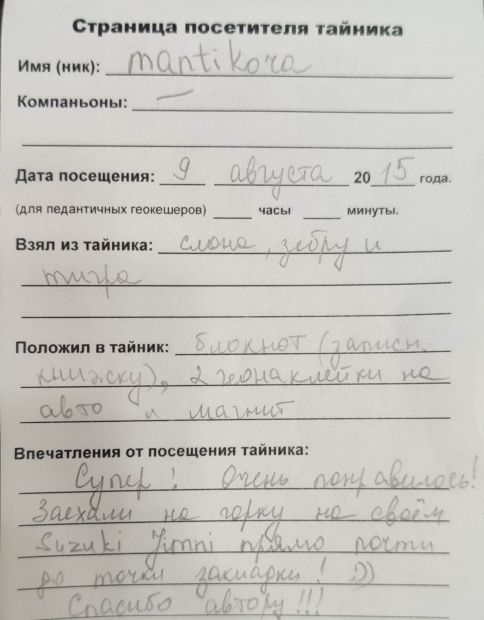 Страница посетителя тайника
Имя (ник): mantikora
Компаньоны: —
Дата посещения: 9 августа 2015 года.
(для педантичных геокешеров) ____ часы ____ минуты.
Взял из тайника: слона, зебру и
тигра
Положил в тайник: блокнот (записн.
книжку), 2 геонаклейки на
авто и магнит
Впечатления от посещения тайника:
Супер! Очень понравилось!
Заехали на горку на своём
Suzuki Jimni прямо почти
до точки закладки! :))
Спасибо автору!!!